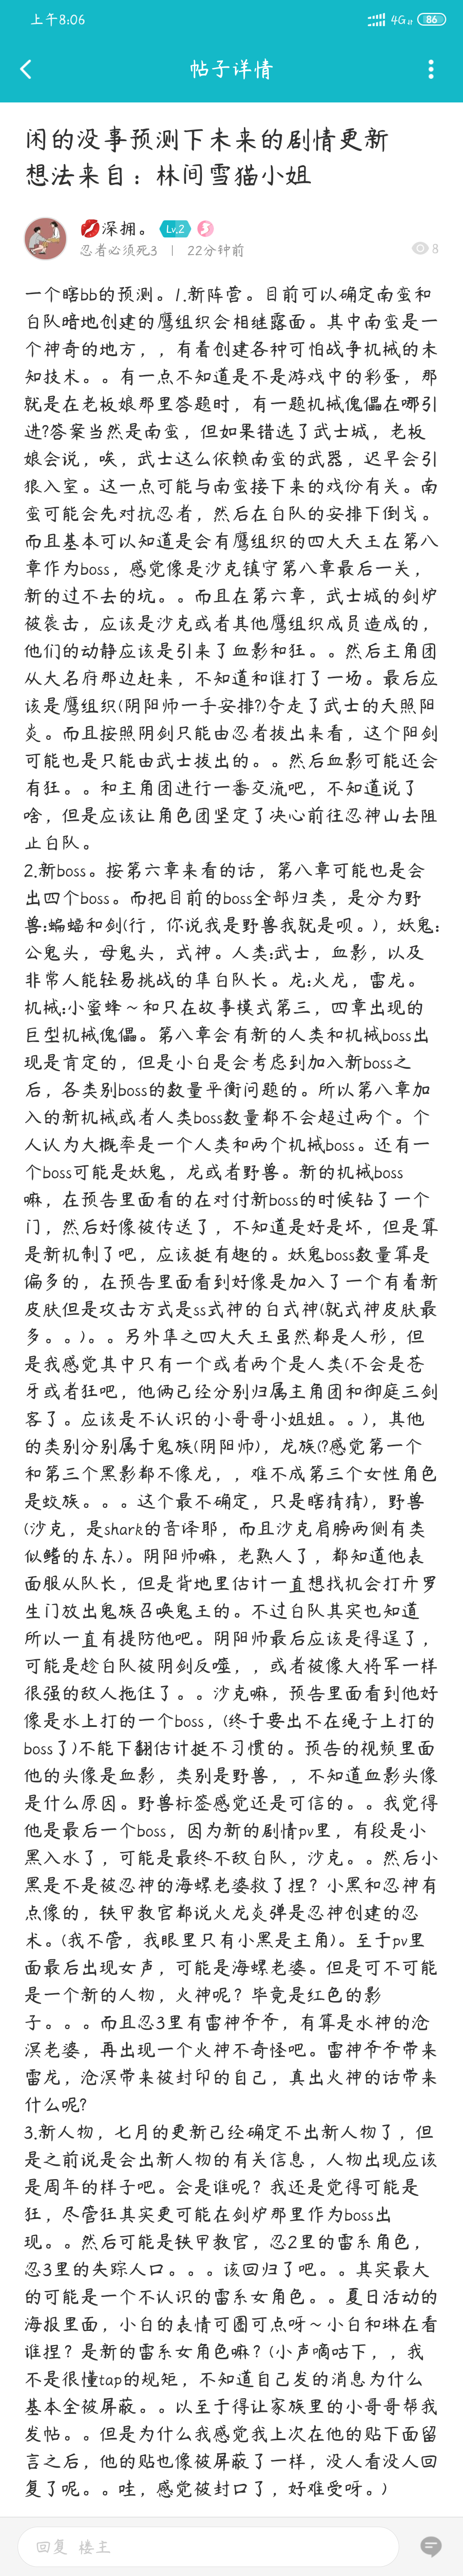 上午8:06
4G
86
帖子详情
闲的没事预测下未来的剧情更新
想法来自：林间雪猫小姐
💋深拥。 Lv.2
忍者必须死3 | 22分钟前
8
一个瞎bb的预测。1.新阵营。目前可以确定南蛮和
白队暗地创建的鹰组织会相继露面。其中南蛮是一
个神奇的地方，，有着创建各种可怕战争机械的未
知技术。。有一点不知道是不是游戏中的彩蛋，那
就是在老板娘那里答题时，有一题机械傀儡在哪引
进?答案当然是南蛮，但如果错选了武士城，老板
娘会说，唉，武士这么依赖南蛮的武器，迟早会引
狼入室。这一点可能与南蛮接下来的戏份有关。南
蛮可能会先对抗忍者，然后在白队的安排下倒戈。
而且基本可以知道是会有鹰组织的四大天王在第八
章作为boss，感觉像是沙克镇守第八章最后一关，
新的过不去的坑。。而且在第六章，武士城的剑炉
被袭击，应该是沙克或者其他鹰组织成员造成的，
他们的动静应该是引来了血影和狂。。然后主角团
从大名府那边赶来，不知道和谁打了一场。最后应
该是鹰组织(阴阳师一手安排?)夺走了武士的天照阳
炎。而且按照阴剑只能由忍者拔出来看，这个阳剑
可能也是只能由武士拔出的。。然后血影可能还会
有狂。。和主角团进行一番交流吧，不知道说了
啥，但是应该让角色团坚定了决心前往忍神山去阻
止白队。
2.新boss。按第六章来看的话，第八章可能也是会
出四个boss。而把目前的boss全部归类，是分为野
兽:蝙蝠和剑(行，你说我是野兽我就是呗。)，妖鬼:
公鬼头，母鬼头，式神。人类:武士，血影，以及
非常人能轻易挑战的隼白队长。龙:火龙，雷龙。
机械:小蜜蜂～和只在故事模式第三，四章出现的
巨型机械傀儡。第八章会有新的人类和机械boss出
现是肯定的，但是小白是会考虑到加入新boss之
后，各类别boss的数量平衡问题的。所以第八章加
入的新机械或者人类boss数量都不会超过两个。个
人认为大概率是一个人类和两个机械boss。还有一
个boss可能是妖鬼，龙或者野兽。新的机械boss
嘛，在预告里面看的在对付新boss的时候钻了一个
门，然后好像被传送了，不知道是好是坏，但是算
是新机制了吧，应该挺有趣的。妖鬼boss数量算是
偏多的，在预告里面看到好像是加入了一个有着新
皮肤但是攻击方式是ss式神的白式神(就式神皮肤最
多。。)。。另外隼之四大天王虽然都是人形，但
是我感觉其中只有一个或者两个是人类(不会是苍
牙或者狂吧，他俩已经分别归属主角团和御庭三剑
客了。应该是不认识的小哥哥小姐姐。。)，其他
的类别分别属于鬼族(阴阳师)，龙族(?感觉第一个
和第三个黑影都不像龙，，难不成第三个女性角色
是蛟族。。。这个最不确定，只是瞎猜猜)，野兽
(沙克，是shark的音译耶，而且沙克肩膀两侧有类
似鳍的东东)。阴阳师嘛，老熟人了，都知道他表
面服从队长，但是背地里估计一直想找机会打开罗
生门放出鬼族召唤鬼王的。不过白队其实也知道
所以一直有提防他吧。阴阳师最后应该是得逞了，
可能是趁白队被阴剑反噬，，或者被像大将军一样
很强的敌人拖住了。。沙克嘛，预告里面看到他好
像是水上打的一个boss，(终于要出不在绳子上打的
boss了)不能下翻估计挺不习惯的。预告的视频里面
他的头像是血影，类别是野兽，，不知道血影头像
是什么原因。野兽标签感觉还是可信的。。我觉得
他是最后一个boss，因为新的剧情pv里，有段是小
黑入水了，可能是最终不敌白队，沙克。。然后小
黑是不是被忍神的海螺老婆救了捏？小黑和忍神有
点像的，铁甲教官都说火龙炎弹是忍神创建的忍
术。(我不管，我眼里只有小黑是主角)。至于pv里
面最后出现女声，可能是海螺老婆。但是可不可能
是一个新的人物，火神呢？毕竟是红色的影
子。。。而且忍3里有雷神爷爷，有算是水神的沧
溟老婆，再出现一个火神不奇怪吧。雷神爷爷带来
雷龙，沧溟带来被封印的自己，真出火神的话带来
什么呢?
3.新人物，七月的更新已经确定不出新人物了，但
是之前说是会出新人物的有关信息，人物出现应该
是周年的样子吧。会是谁呢？我还是觉得可能是
狂，尽管狂其实更可能在剑炉那里作为boss出
现。。然后可能是铁甲教官，忍2里的雷系角色，
忍3里的失踪人口。。。该回归了吧。。其实最大
的可能是一个不认识的雷系女角色。。夏日活动的
海报里面，小白的表情可圈可点呀～小白和琳在看
谁捏？是新的雷系女角色嘛？(小声嘀咕下，，我
不是很懂tap的规矩，不知道自己发的消息为什么
基本全被屏蔽。。以至于得让家族里的小哥哥帮我
发帖。。但是为什么我感觉我上次在他的贴下面留
言之后，他的贴也像被屏蔽了一样，没人看没人回
复了呢。。哇，感觉被封口了，好难受呀。)
回复 楼主